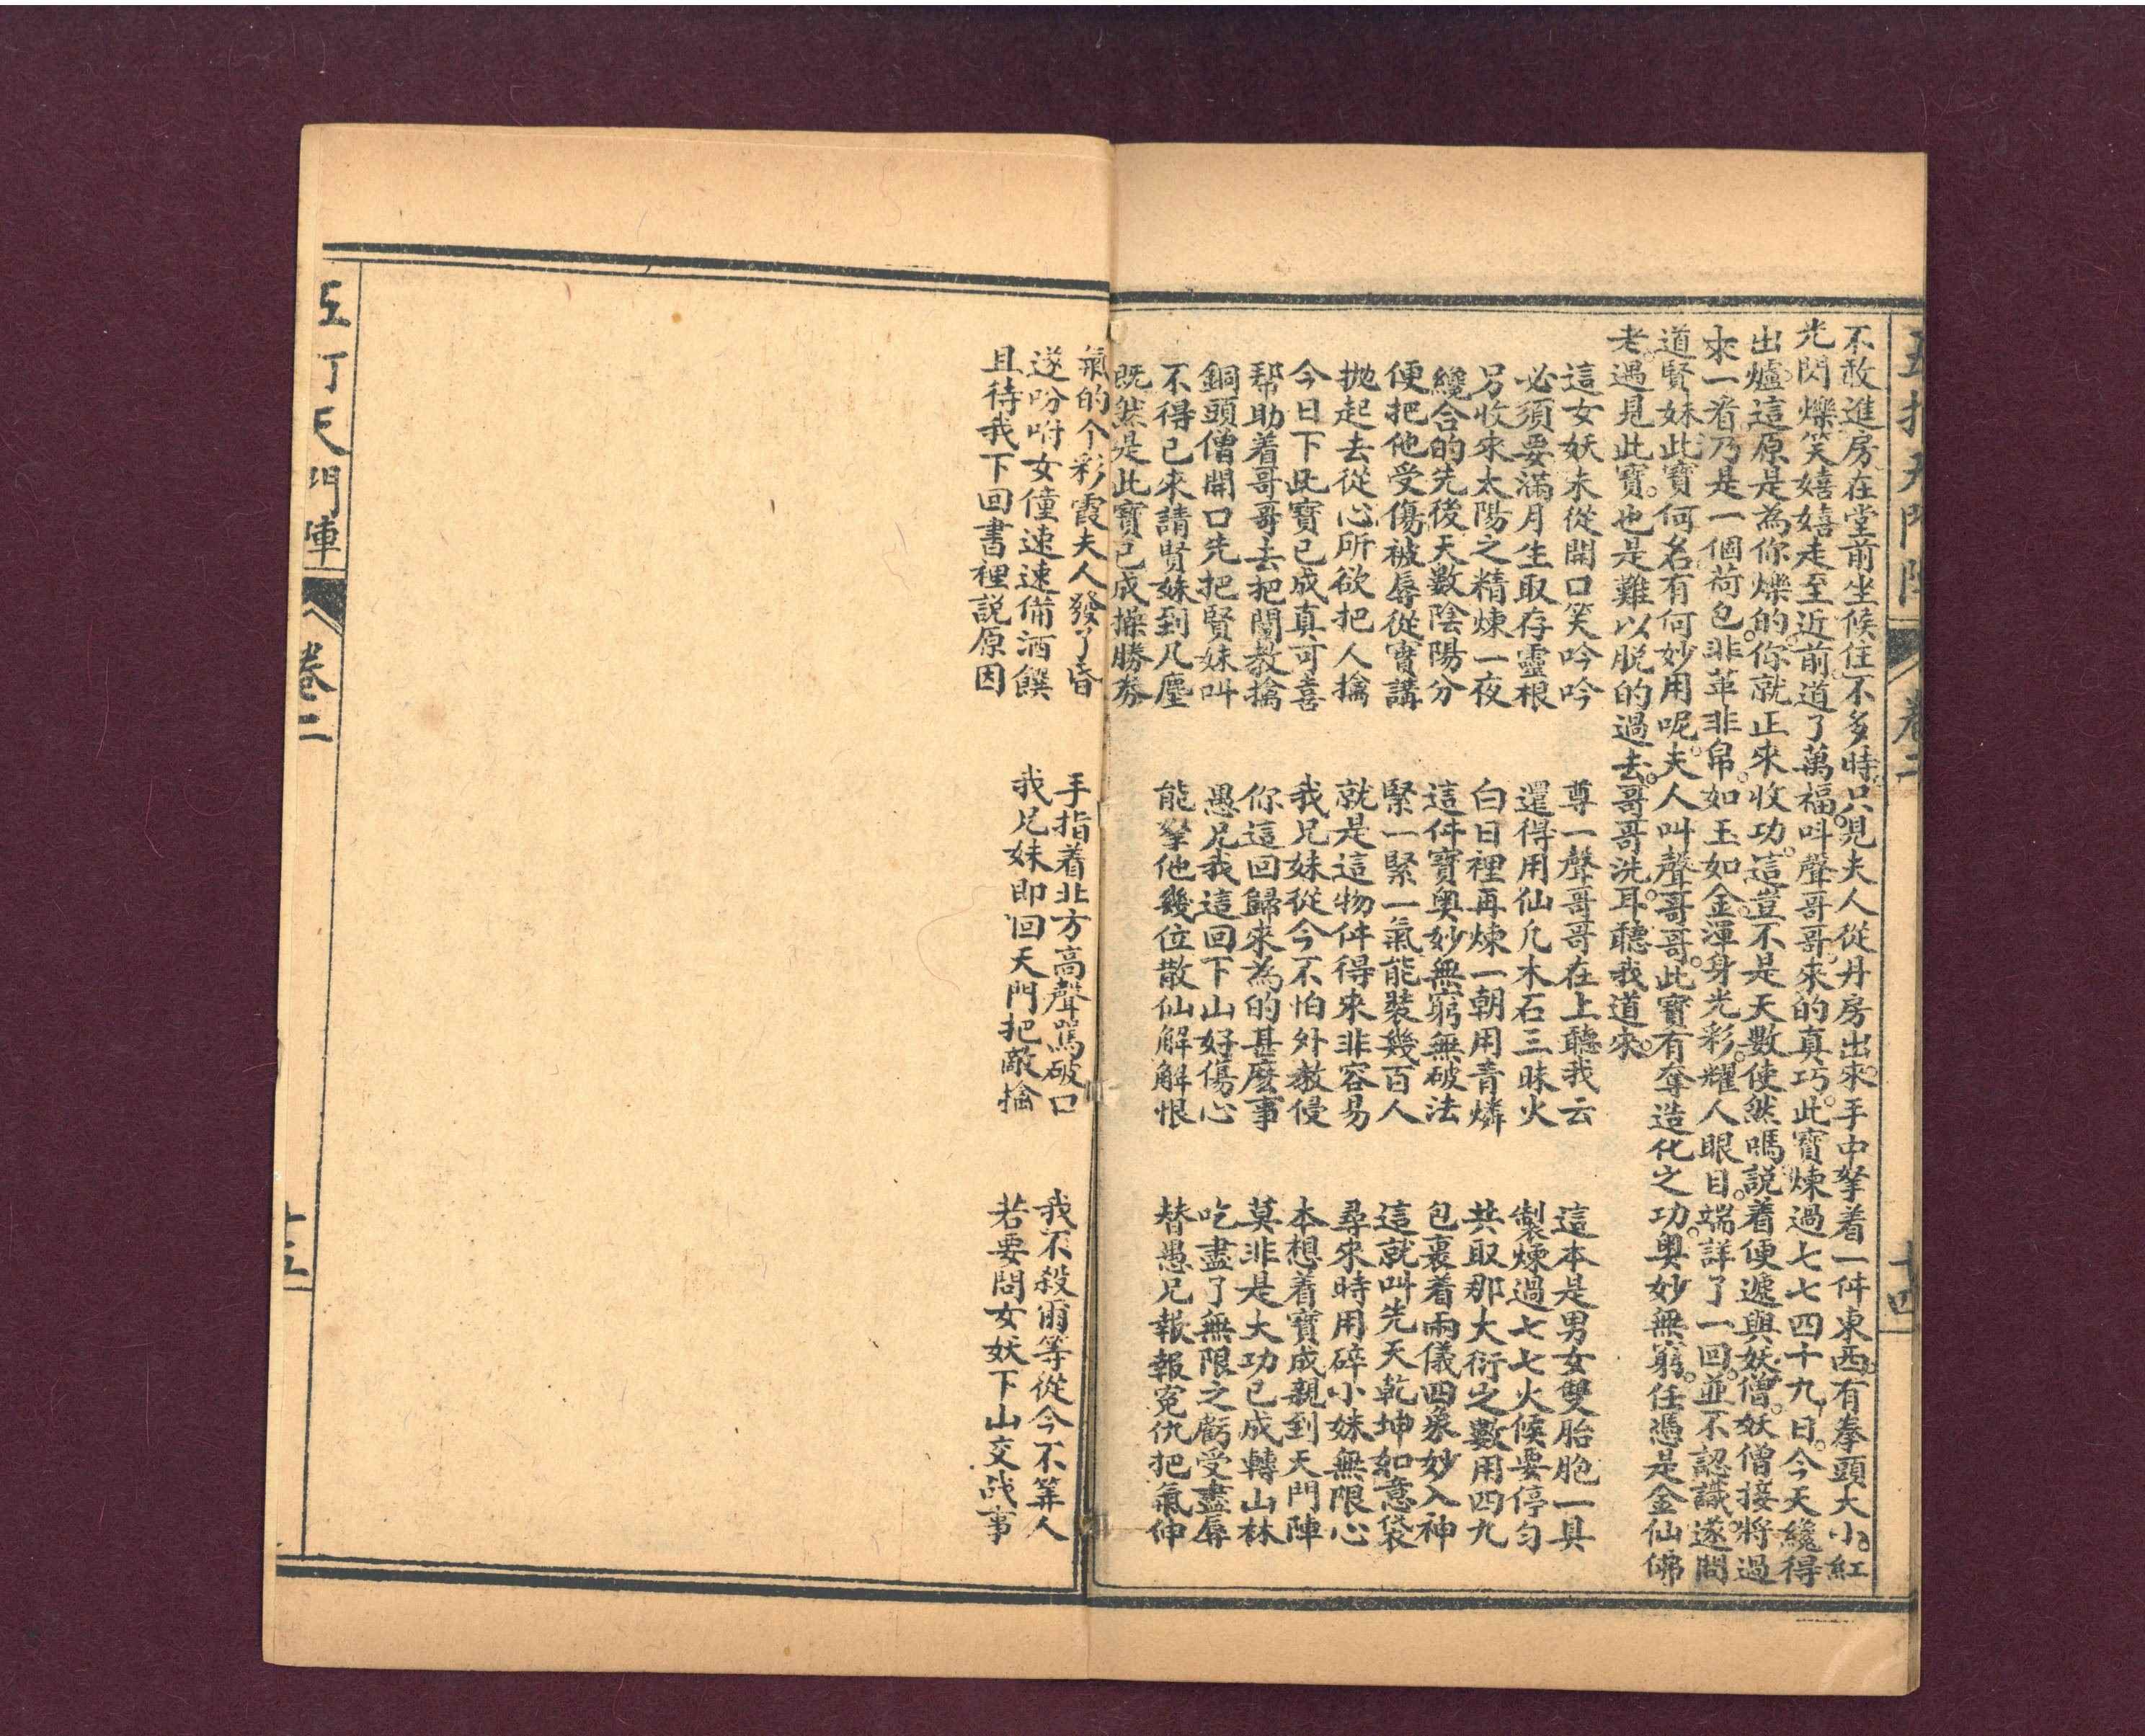 五打天門陣 卷二 十四
不敢進房在堂前坐候住不多時只見夫人從丹房出來手中拏着一件東西有拳頭大小紅
光閃爍笑嘻嘻走至近前道了萬福呌聲哥哥來的真巧此寶煉過七七四十九日今天纔得
出爐這原是為你爍的你就正來收功這豈不是天數使然嗎説着便遞與妖僧妖僧接將過
來一看乃是一個荷包非革非帛如玉如金渾身光彩耀人眼目端詳了一回並不認識遂問
道賢妹此寶何名有何妙用呢夫人叫聲哥哥此寶有奪造化之功奥妙無窮任憑是金仙佛
老遇見此寶也是難以脱的過去哥哥洗耳聽我道來
這女妖未從開口笑吟吟 尊一聲哥哥在上聽我云 這本是男女雙胎胞一具
必須要滿月生取存靈根 還得用仙凡木石三昧火 製煉過七七火候要停匀
另收來太陽之精煉一夜 白日裡再煉一朝用青燐 共取那大衍之數用四九
纔合的先後天數陰陽分 這件寶奥妙無窮無破法 包裹着兩儀四象妙入神
便把他受傷被辱從實講 緊一緊一氣能裝幾百人 這就叫先天乾坤如意袋
拋起去從心所欲把人擒 就是這物件得來非容易 尋來時用碎小妹無限心
今日下此寶已成真可喜 我兄妹從今不怕外教侵 本想着寶成親到天門陣
帮助着哥哥去把闡教擒 你這回歸來為的甚麽事 莫非是大功已成轉山林
銅頭僧開口先把賢妹叫 愚兄我這回下山好傷心 吃盡了無限之虧受盡辱
不得已來請賢妹到凡塵 能拏他幾位散仙解解恨 替愚兄報報寃仇把氣伸
既然是此寶已成操勝券
氣的个彩霞夫人發了昏 手指着北方高聲罵破口 我不殺爾等從今不筭人
遂吩咐女僮速速俻酒饌 我兄妹即回天門把敵擒 若要問女妖下山交战事
且待我下回書裡説原因
五打天門陣 卷二 十五